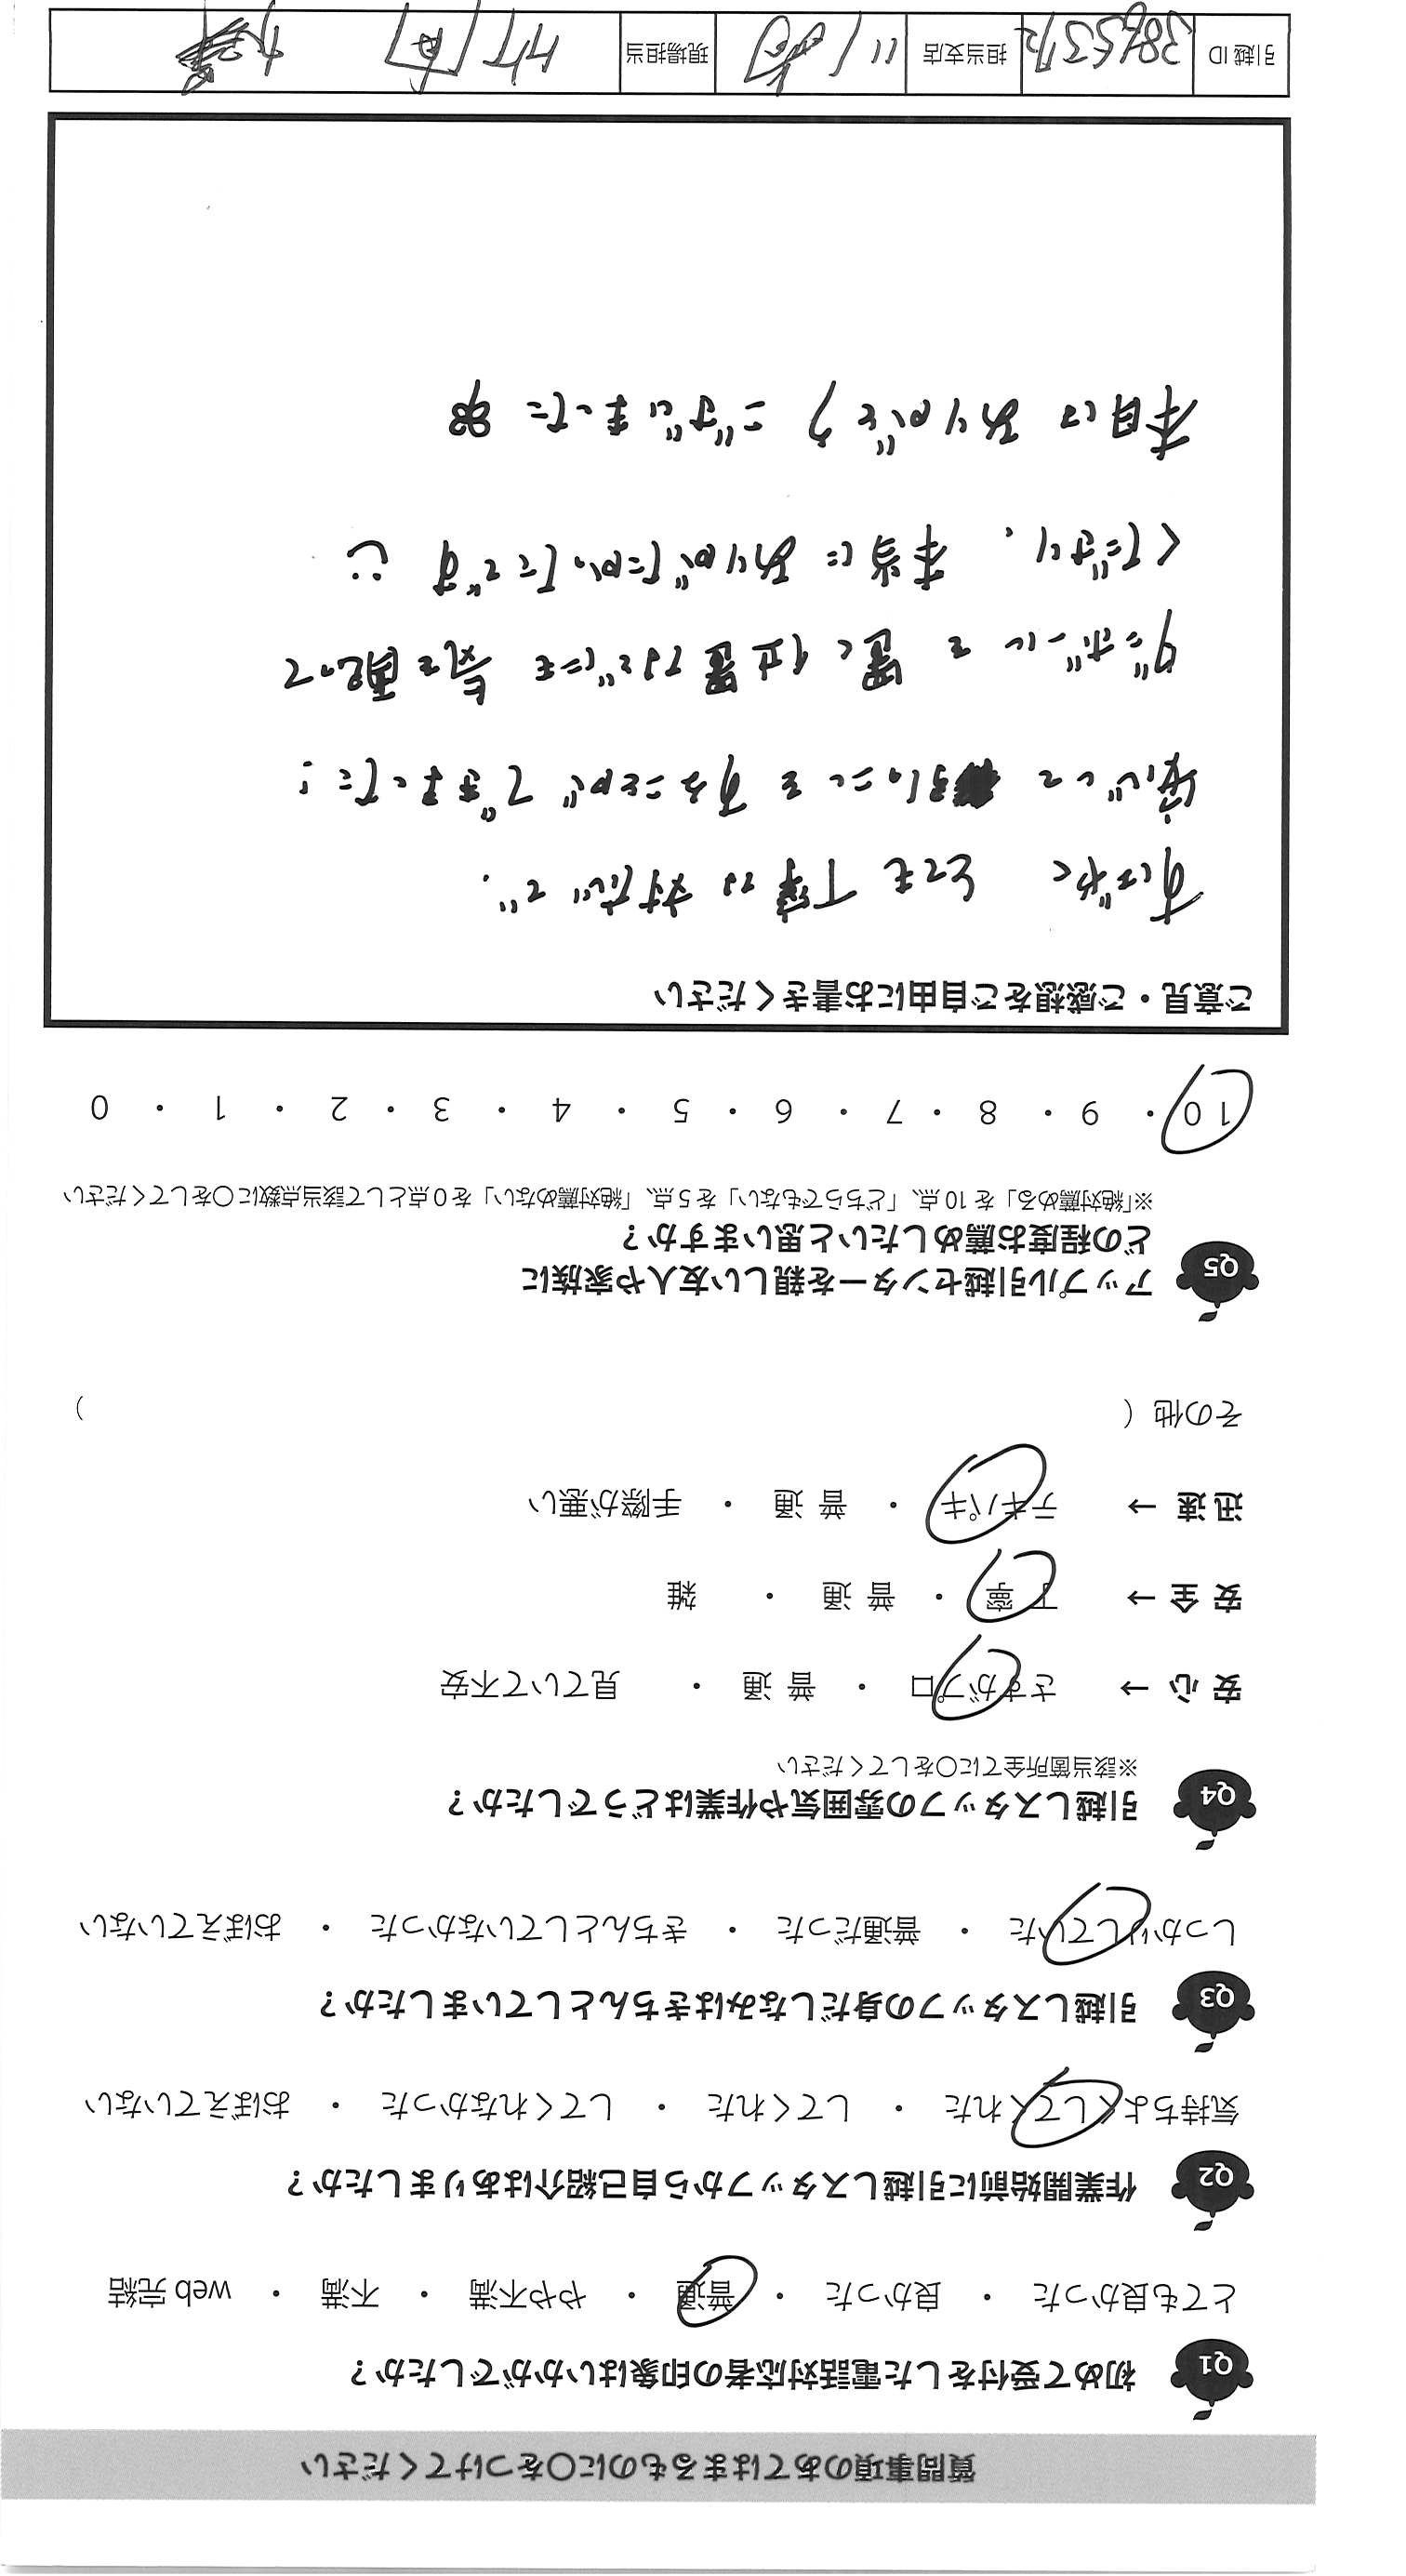 質問事項のあてはまるものに〇をつけてください
Q1 初めて受付をした電話対応者の印象はいかがでしたか？
とても良かった ・ 良かった ・ 普通 ・ やや不満 ・ 不満 ・ web 完結
Q2 作業開始前に引越しスタッフから自己紹介はありましたか？
気持ちよくしてくれた ・ してくれた ・ してくれなかった ・ おぼえていない
Q3 引越しスタッフの身だしなみはきちんとしていましたか？
しっかりしていた ・ 普通だった ・ きちんとしていなかった ・ おぼえていない
Q4 引越しスタッフの雰囲気や作業はどうでしたか？
※該当箇所全てに〇をしてください
安 心 → さすがプロ ・ 普 通 ・ 見ていて不安
安 全 → 丁 寧 ・ 普 通 ・ 雑
迅 速 → テキパキ ・ 普 通 ・ 手際が悪い
その他（ ）
Q5 アップル引越センターを親しい友人や家族に
どの程度お薦めしたいと思いますか？
※「絶対薦める」を 10 点、「どちらでもない」を 5 点、「絶対薦めない」を 0 点として該当点数に〇をしてください
10 ・ 9 ・ 8 ・ 7 ・ 6 ・ 5 ・ 4 ・ 3 ・ 2 ・ 1 ・ 0
ご意見・ご感想をご自由にお書きください
すばやく とても丁寧な対応で、
安心して 引っこしをすることができました！
ダンボールを 置く位置などにも 気を配って
くださり、本当に ありがたかったです
本日は ありがとうございました
引越 ID 担当支店 川崎 現場担当 竹内